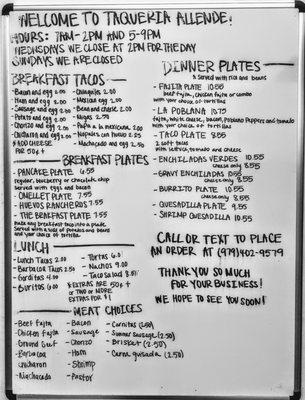 WELCOME TO TAQUERIA ALLENDE!
HOURS: 7AM-2PM AND 5-9PM
WEDNSDAYS WE CLOSE AT 2PM FOR THE DAY
SUNDAYS WE ARE CLOSED
BREAKFAST TACOS
- Bacon and egg 2.00
- Ham and egg 2.00
- Sausage and egg 2.00
- Potato and egg 2.00
- Chorizo and egg 2.00
- Chicharron and egg 2.00
* ADD CHEESE
FOR 50¢!
- Chilaquiles 2.00
- Mexican egg 2.00
- Bean and cheese 2.00
- Migas 2.50
- Papa a la mexicana 2.00
- Nopales con huevo 2.25
- Machacado and egg 2.50
BREAKFAST PLATES
- PANCAKE PLATE 6.55
regular, blueberry or chocolate chip
served with eggs and bacon
- OMELLET PLATE 7.55
- HUEVOS RANCHEROS 7.55
- THE BREAKFAST PLATE 7.55
Make any breakfast taco into a plate.
Served with a side of potatoes and beans
and your choice of tortilla
LUNCH
- Lunch Tacos 2.00
- Barbacoa Tacos 2.50
- Gorditas 4.00
- Burritos 6.00
- Tortas 6.01
- Nachos 9.00
- Taco salad 8.81
* EXTRAS ARE 50¢ !
OR TWO OR MORE
EXTRAS FOR $1
DINNER PLATES
* Served with rice and beans
- FAJITA PLATE 10.55
beef fajita, chicken fajita or combo
with your choice of tortillas
- LA POBLANA 10.75
fajita, white cheese, bacon, Poblano Peppers and tomato
with your choice of tortillas
- TACO PLATE 8.55
2 soft tacos
with lettuce, tomato and cheese
- ENCHILADAS VERDES 10.55
cheese only 8.55
- GRAVY ENCHILADAS 10.55
cheese only 8.55
- BURRITO PLATE 10.55
cheese only 8.55
- QUESADILLA PLATE 9.55
- SHRIMP QUESADILLA 10.55
CALL OR TEXT TO PLACE
AN ORDER AT (979)402-9579
THANK YOU SO MUCH
FOR YOUR BUSINESS!
WE HOPE TO SEE YOU SOON!
MEAT CHOICES
- Beef fajita
- Chicken fajita
- Ground Beef
- Barbacoa
- Chicharon
- Machacado
- Bacon
- Sausage
- Chorizo
- Ham
- Shrimp
- Pastor
- Carnitas (2.50)
- Summer Sausage (2.50)
- Brisket (2.50)
- Carne guisada (2.50)